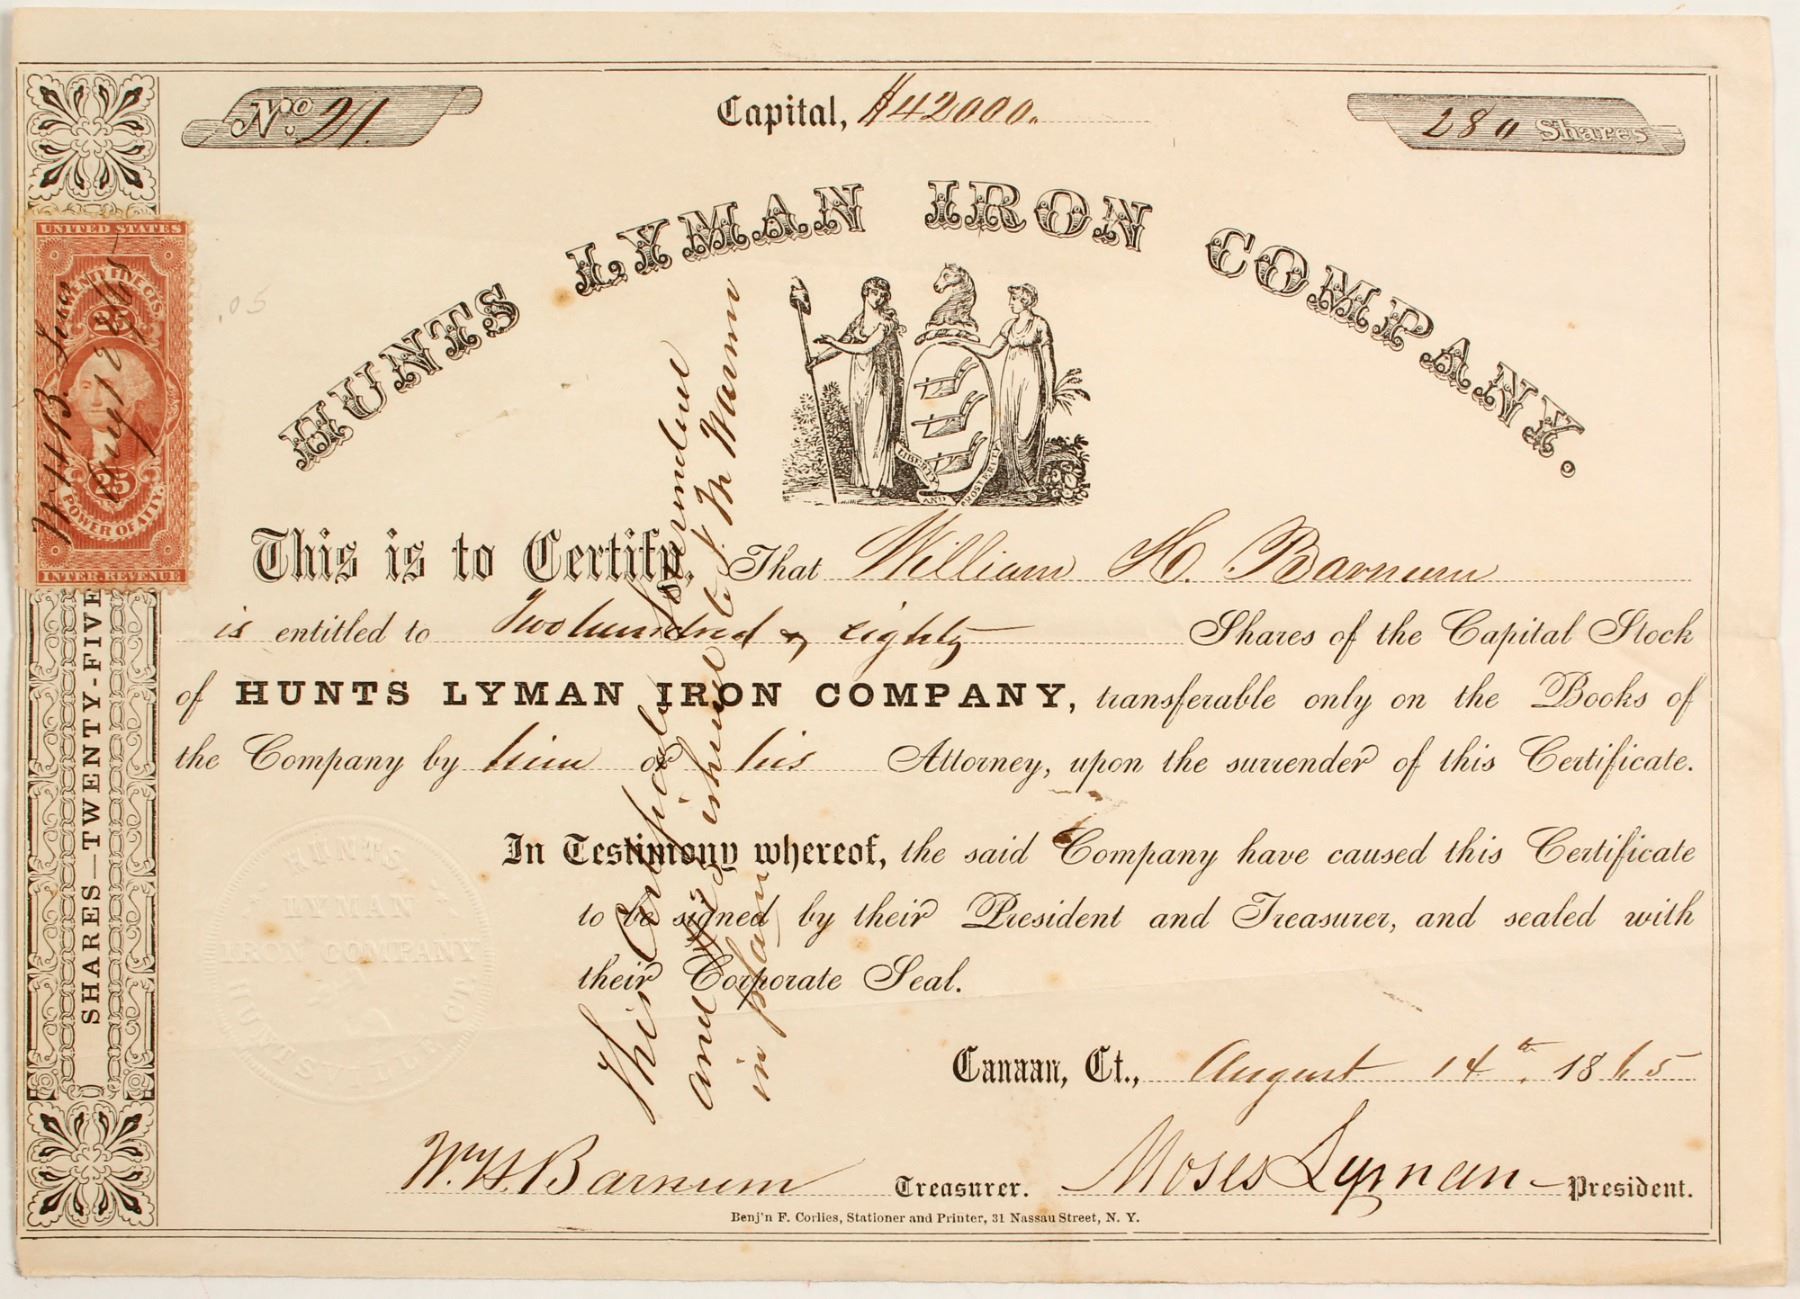 No. 21.
Capital, $42000.
280 Shares
HUNTS LYMAN IRON COMPANY.
UNITED STATES
25
25
POWER OF ATT'Y.
INTER. REVENUE
W H B
.05
LIBERTY AND PROSPERITY
This is to Certify, That William H. Barnum
is entitled to Two hundred & eighty Shares of the Capital Stock
of HUNTS LYMAN IRON COMPANY, transferable only on the Books of
the Company by him or his Attorney, upon the surrender of this Certificate.
In Testimony whereof, the said Company have caused this Certificate
to be signed by their President and Treasurer, and sealed with
their Corporate Seal.
Canaan, Ct., August 14th. 1865
Wm H. Barnum Treasurer. Moses Lyman President.
Benj'n F. Corlies, Stationer and Printer, 31 Nassau Street, N. Y.
SHARES—TWENTY-FIVE
HUNTS,
LYMAN
IRON COMPANY
HUNTSVILLE CO.
This
and by
in place